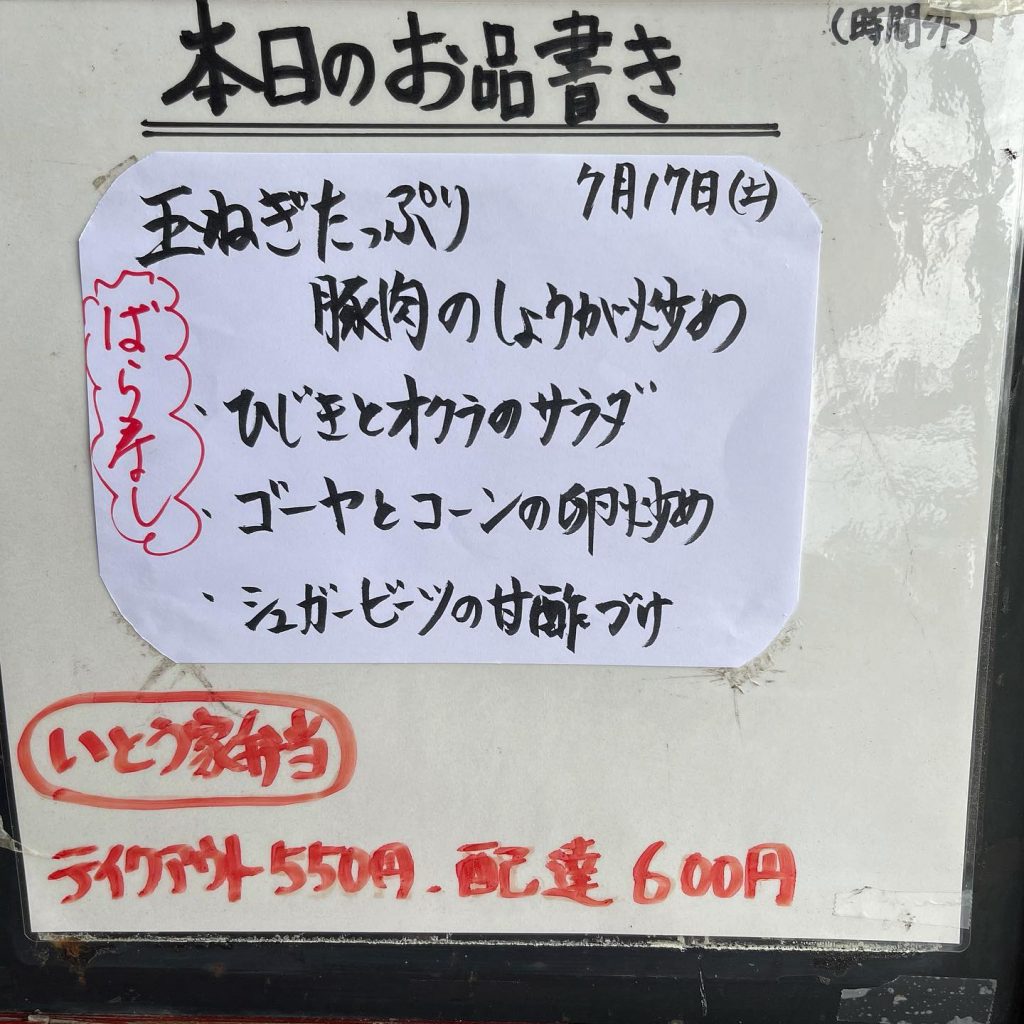 本日のお品書き
(時間外)
7月17日(土)
玉ねぎたっぷり
豚肉のしょうが炒め
ばら寿し
・ひじきとオクラのサラダ
・ゴーヤとコーンの卵炒め
・シュガービーツの甘酢づけ
いとう家弁当
テイクアウト550円.配達600円